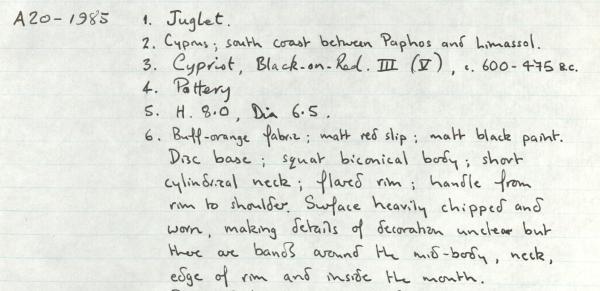 A20-1985 1. Juglet.
2. Cyprus; south coast between Paphos and Limassol.
3. Cypriot, Black-on-Red. III (V), c. 600-475 B.C.
4. Pottery
5. H. 8.0, Dia 6.5.
6. Buff-orange fabric; matt red slip; matt black paint.
Disc base; squat biconical body; short
cylindrical neck; flared rim; handle from
rim to shoulder. Surface heavily chipped and
worn, making details of decoration unclear but
there are bands around the mid-body, neck,
edge of rim and inside the mouth.